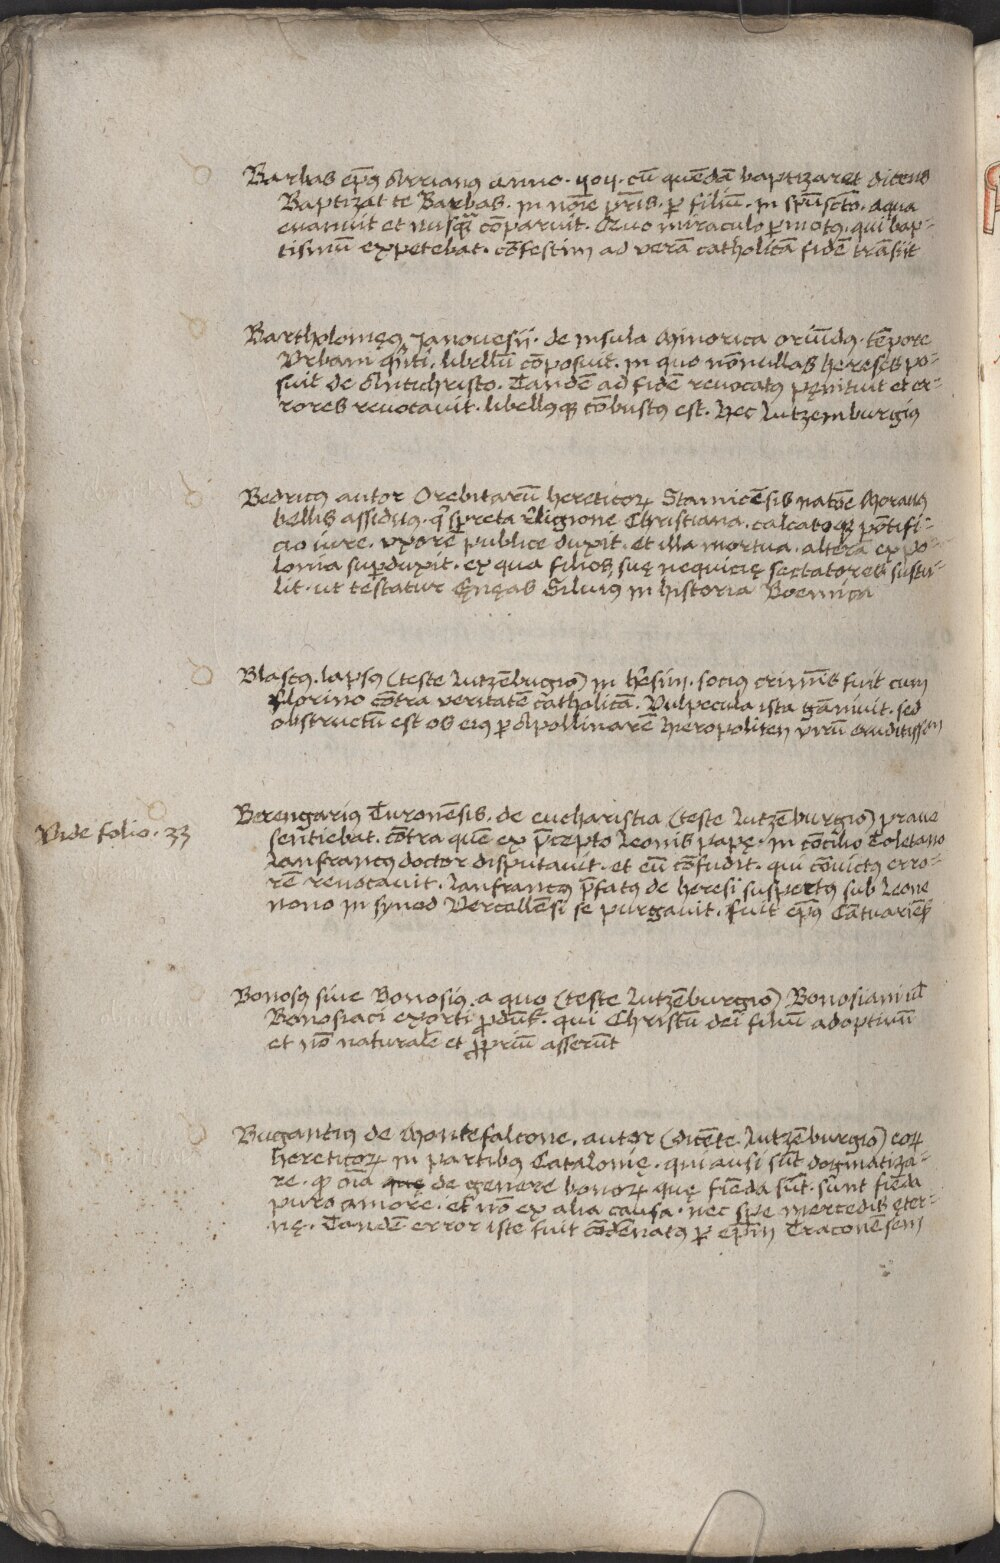 Barbas ep̄s Arrianus anno. 404. cū quēdā baptizaret dicens
Baptizat te Barbas. in noīe pr̄is. ꝑ filiū. in spūsctō. aqua
euanuit et nusq̄ cōparuit. Quo miraculo ꝑmotꝰ. qui bap-
tismū expetebat. cōfestim ad verā catholicā fidē trāsiit
Bartholomęꝰ Janouesii. de insula Minorica oriūdꝰ. tēpore
Vrbani qnti. libellū cōposuit. in quo nōnullas hereses po-
suit de Antichristo. Tandē ad fidē reuocatꝰ pęnituit et er-
rores reuocauit. libellꝰqꝫ cōbustꝰ est. Hec Lutzemburgiꝰ
Bedricꝰ autor Orebitarū hereticoꝝ Stamicēsis natōe Morauꝰ
bellis assiduꝰ. q spreta religione Christiana. calcatoqꝫ pōtifi-
cio iure. vxorē publice duxit. et illa mortua. alterā ex po-
lonia suꝑduxit. ex qua filios, suę nequicię sectatores sustu-
lit. ut testatur Ęnęas Siluiꝰ in historia Boemica
Blastꝰ. lapsꝰ (teste Lutzēburgio) in hēsim. sociꝰ criminis fuit cum
florino cōtra veritatē catholicā. Vulpecula ista gāniuit. sed
obstructū est os eiꝰ ꝑ Apollinarē Hieropoliten virū eruditissim
Vide folio. 33
Berengariꝰ Turonēsis. de eucharistia (teste Lutzēburgio) praue
sentiebat. cōtra quē ex p̄cepto Leonis papę. in cōcilio Toletano
Lanfrancꝰ doctor disputauit. et eū cōfudit. qui cōuictꝰ erro-
rē reuocauit. Lanfrancꝰ p̄fatꝰ de heresi suspectꝰ sub Leone
nono in synod Vercellēsi se purgauit. fuit ep̄s Cātuariēs
Bonosꝰ siue Bonosiꝰ. a quo (teste Lutzēburgio) Bonosiani ul
Bonosiaci exorti ꝓdūt. qui Christū dei filiū adoptiuū
et nō naturalē et ꝓpriū asserūt
Bugantiꝰ de Montefalcone. autor (dicēte Lutzēburgio) eoꝝ
hereticoꝝ in partibꝰ Catalonię. qui ausi sūt dogmatiza-
re. qꝫ oīa quę de genere bonoꝝ quę fiēda sūt. sunt fiēda
puro amore. et nō ex alia causa. nec spe mercedis ęter-
nę. Tandē error iste fuit cōdēnatꝰ ꝑ epm̄ Traconēsem